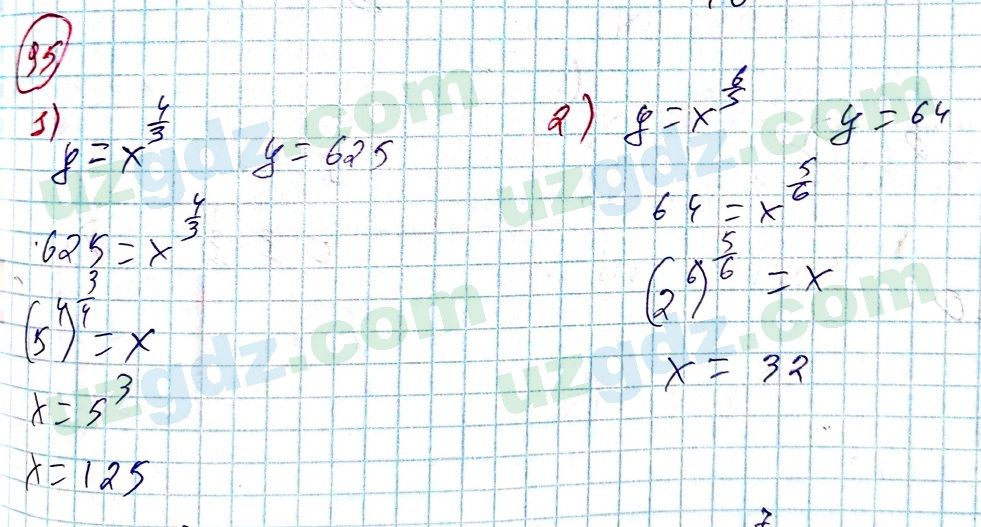 95
1) y = x^(4/3) y = 625
625 = x^(4/3)
(5^4)^(3/4) = x
x = 5^3
x = 125
2) y = x^(6/5) y = 64
64 = x^(5/6)
(2^6)^(5/6) = x
x = 32
uzgdz.com
uzgdz.com
uzgdz.com
uzgdz.com